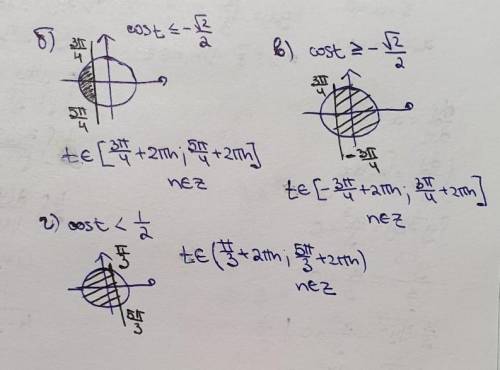 б) cost ≤ -√2/2
3π/4
5π/4
t ∈ [3π/4 + 2πn; 5π/4 + 2πn]
n∈z
в) cost ≥ -√2/2
3π/4
-3π/4
t ∈ [-3π/4 + 2πn; 3π/4 + 2πn]
n∈z
г) cost < 1/2
π/3
5π/3
t ∈ (π/3 + 2πn; 5π/3 + 2πn)
n∈z